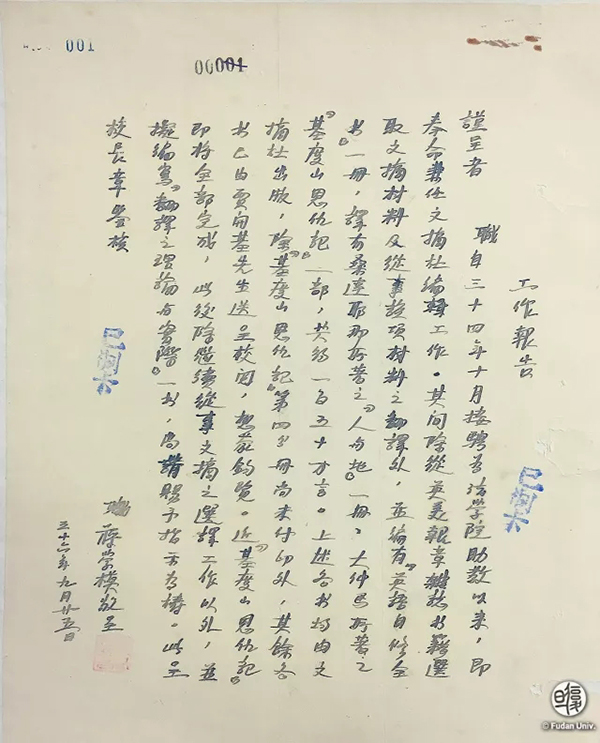 001
00001
工作報告
謹呈者 職自三十四年十月接聘为法學院助教以来，即
奉命兼任文摘社编輯工作。其间除從英美報章雜誌书籍選
取文摘材料及從事該項材料之翻譯外，並编有『英語自修全
书』一冊，譯有桑達耶那所著之『人与地』一冊，大仲馬所著之
『基度山恩仇記』一部，共約一百五十万言。上述各书均由文
摘社出版，除『基度山恩仇記』第四冊尚未付印外，其餘各
书已由賈開基先生送呈校阅，想蒙鈞覧。近『基度山恩仇記』
即将全部完成，此後除継續從事文摘之選擇工作以外，並
擬编寫『翻譯之理論与實際』一书，尚請賜予指示为禱。此呈
校長章鑒核
職 蔣学模敬呈
三十六年九月廿五日
已阅
已阅
© Fudan Univ.